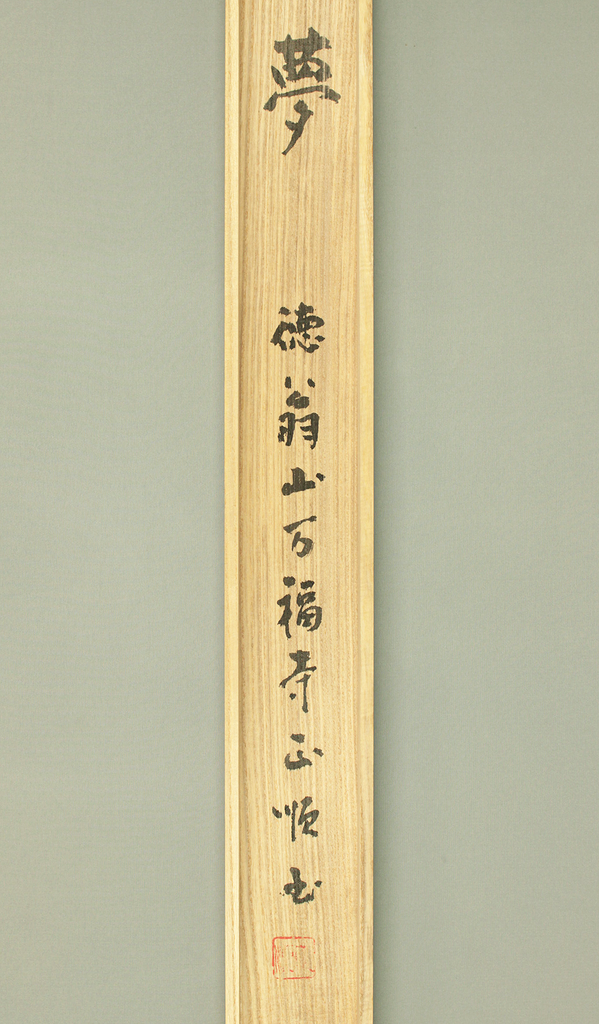 夢
徳翁山万福寺正順書